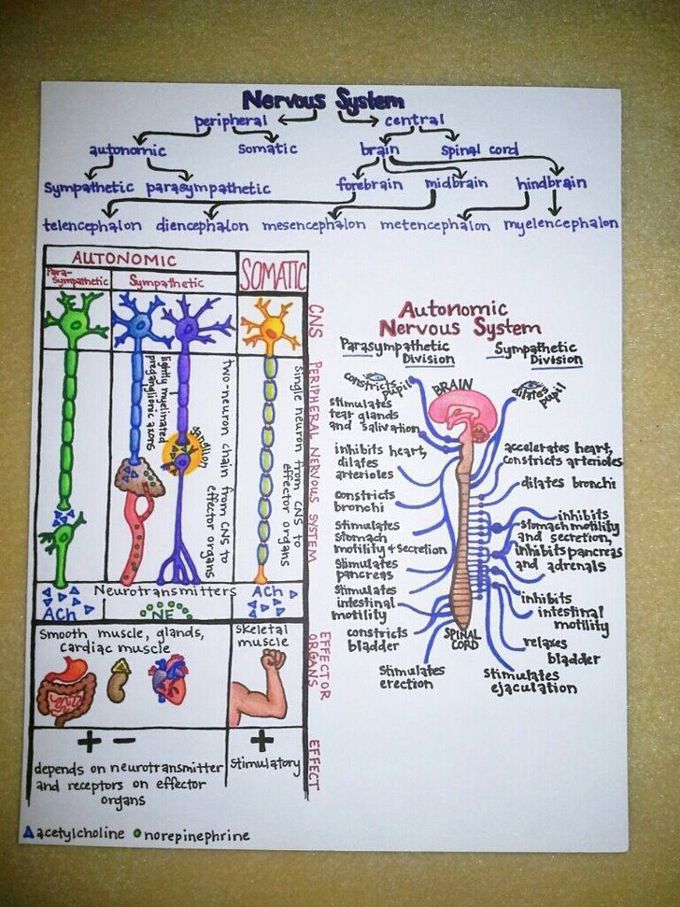 Nervous System
peripheral central
autonomic Somatic brain Spinal cord
Sympathetic parasympathetic forebrain midbrain hindbrain
telencephalon diencephalon mesencephalon metencephalon myelencephalon
AUTONOMIC
SOMATIC
Para-
Sympathetic
Sympathetic
CNS
PERIPHERAL NERVOUS SYSTEM
EFFECTOR
ORGANS
EFFECT
lightly myelinated
preganglionic axons
ganglion
two-neuron chain from CNS to
effector organs
single neuron from CNS to
effector organs
Neurotransmitters
ACh
NE
ACh
Smooth muscle, glands,
cardiac muscle
Skeletal
muscle
+ -
+
depends on neurotransmitter
and receptors on effector
organs
Stimulatory
Δ acetylcholine o norepinephrine
Autonomic
Nervous System
Parasympathetic
Division
Sympathetic
Division
BRAIN
SPINAL
CORD
constricts
pupil
stimulates
tear glands
and salivation
inhibits heart,
dilates
arterioles
constricts
bronchi
Stimulates
Stomach
motility + secretion
Stimulates
pancreas
Stimulates
intestinal
motility
constricts
bladder
Stimulates
erection
dilates
pupil
accelerates heart,
constricts arterioles
dilates bronchi
inhibits
stomach motility
and secretion,
inhibits pancreas
and adrenals
inhibits
intestinal
motility
relaxes
bladder
Stimulates
ejaculation